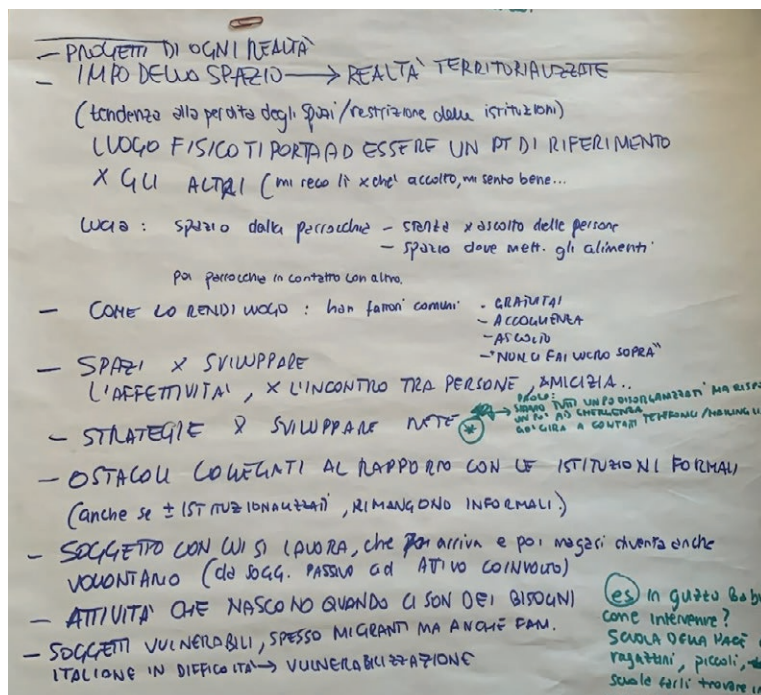 - PROGETTI DI OGNI REALTÀ
- IMPO DELLO SPAZIO → REALTÀ TERRITORIALIZZATE
(tendenza alla perdita degli spazi/restrizione delle istituzioni)
LUOGO FISICO TI PORTA AD ESSERE UN PT DI RIFERIMENTO
X GLI ALTRI (mi reco lì xchè accolto, mi sento bene...
LUCIA: spazio dalla parrocchia - stanza x ascolto delle persone
- spazio dove mett. gli alimenti
poi parrocchia in contatto con altro.
- COME LO RENDI LUOGO: han fattori comuni - GRATUITÀ
- ACCOGLIENZA
- ASCOLTO
- "NON CI FAI LUCRO SOPRA"
- SPAZI X SVILUPPARE
L'AFFETTIVITÀ, X L'INCONTRO TRA PERSONE, AMICIZIA..
- STRATEGIE X SVILUPPARE RETE * → PAOLO:
SIAMO TUTTI UN PO DISORGANIZZATI MA
UN PO' AD EMERGENZA
GIRA A CONTATTI TELEFONICI/MAILING
- OSTACOLI COLLEGATI AL RAPPORTO CON LE ISTITUZIONI FORMALI
(anche se ± ISTITUZIONALIZZATI, RIMANGONO INFORMALI)
- SOGGETTO CON CUI SI LAVORA, che arriva e poi magari diventa anche
VOLONTARIO (da SOGG. PASSIVO ad ATTIVO COINVOLTO)
- ATTIVITÀ CHE NASCONO QUANDO CI SON DEI BISOGNI
- SOGGETTI VULNERABILI, SPESSO MIGRANTI MA ANCHE FAM.
ITALIONE IN DIFFICOLTÀ → VULNERABILIZZAZIONE
es in guzto
come intervenire?
SCUOLA DELLA PACE
ragazzini, piccoli,
scuole farli trovare